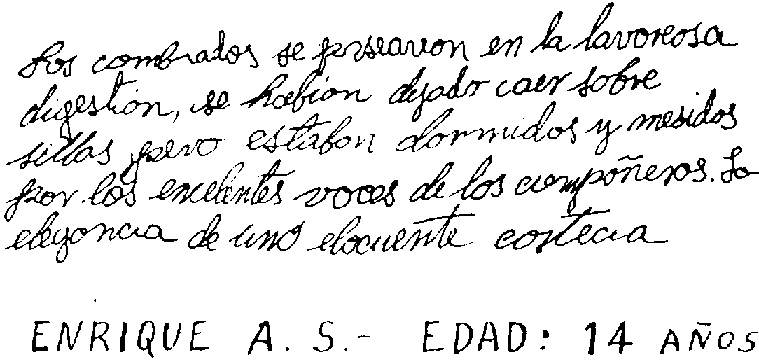 Los combrados se pasearon en la lavoreosa
digestion, se habian dejado caer sobre
sillas pero estabon dormidos y mesidos
por los excelentes voces de los compañeros. La
elegancia de uno elocuente cortecia
ENRIQUE A. S.- EDAD: 14 AÑOS